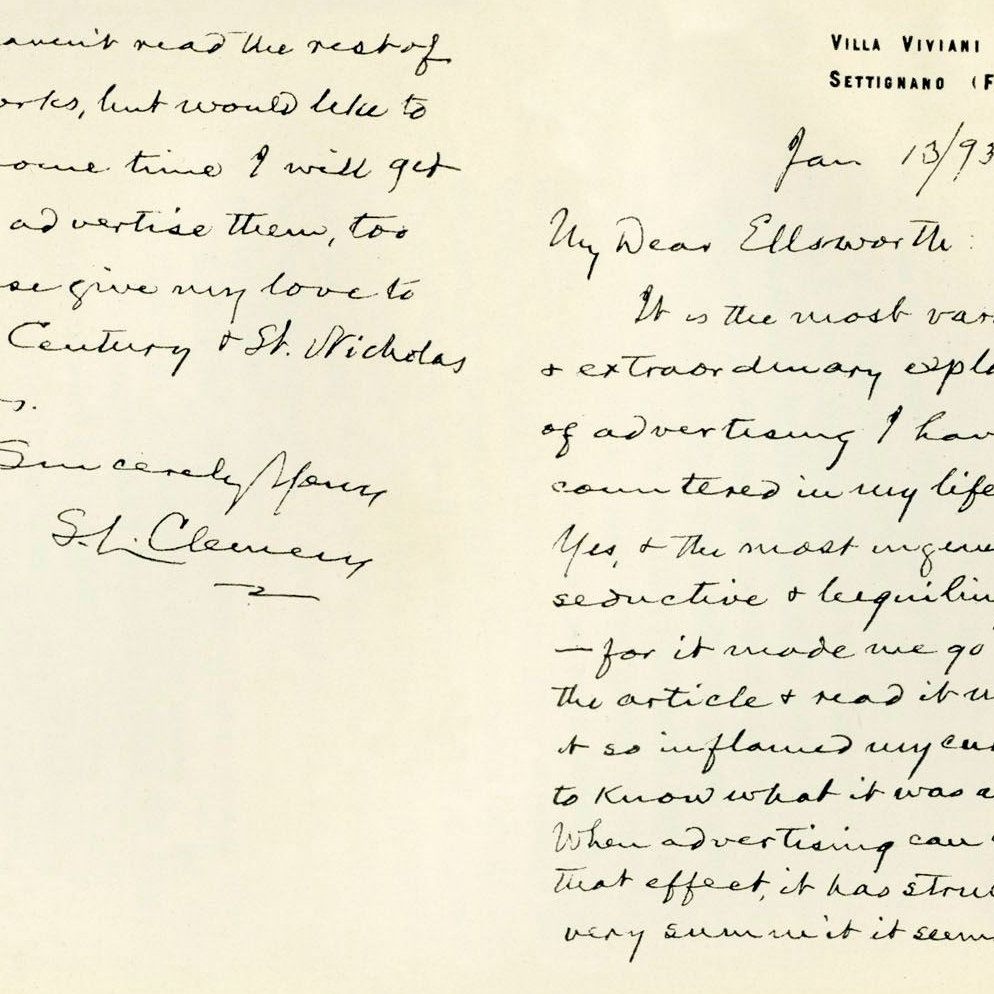 aven't read the rest of
orks, but would like to
ome time I will get
advertise them, too
se give my love to
Century & St. Nicholas
s.
Sincerely Yours
S. L. Clemens
VILLA VIVIANI
SETTIGNANO (F
Jan 13/93
My Dear Ellsworth:
It is the most var
& extraordinary explo
of advertising I hav
countered in my life
Yes, & the most ingen
seductive & beguilin
—for it made me go
the article & read it
it so inflamed my cu
to know what it was a
When advertising can
that effect, it has stru
very summit it seem